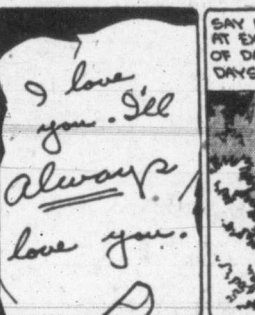 I love
you. I'll
always.
love you.
SAY
AT EX
OF D
DAYS